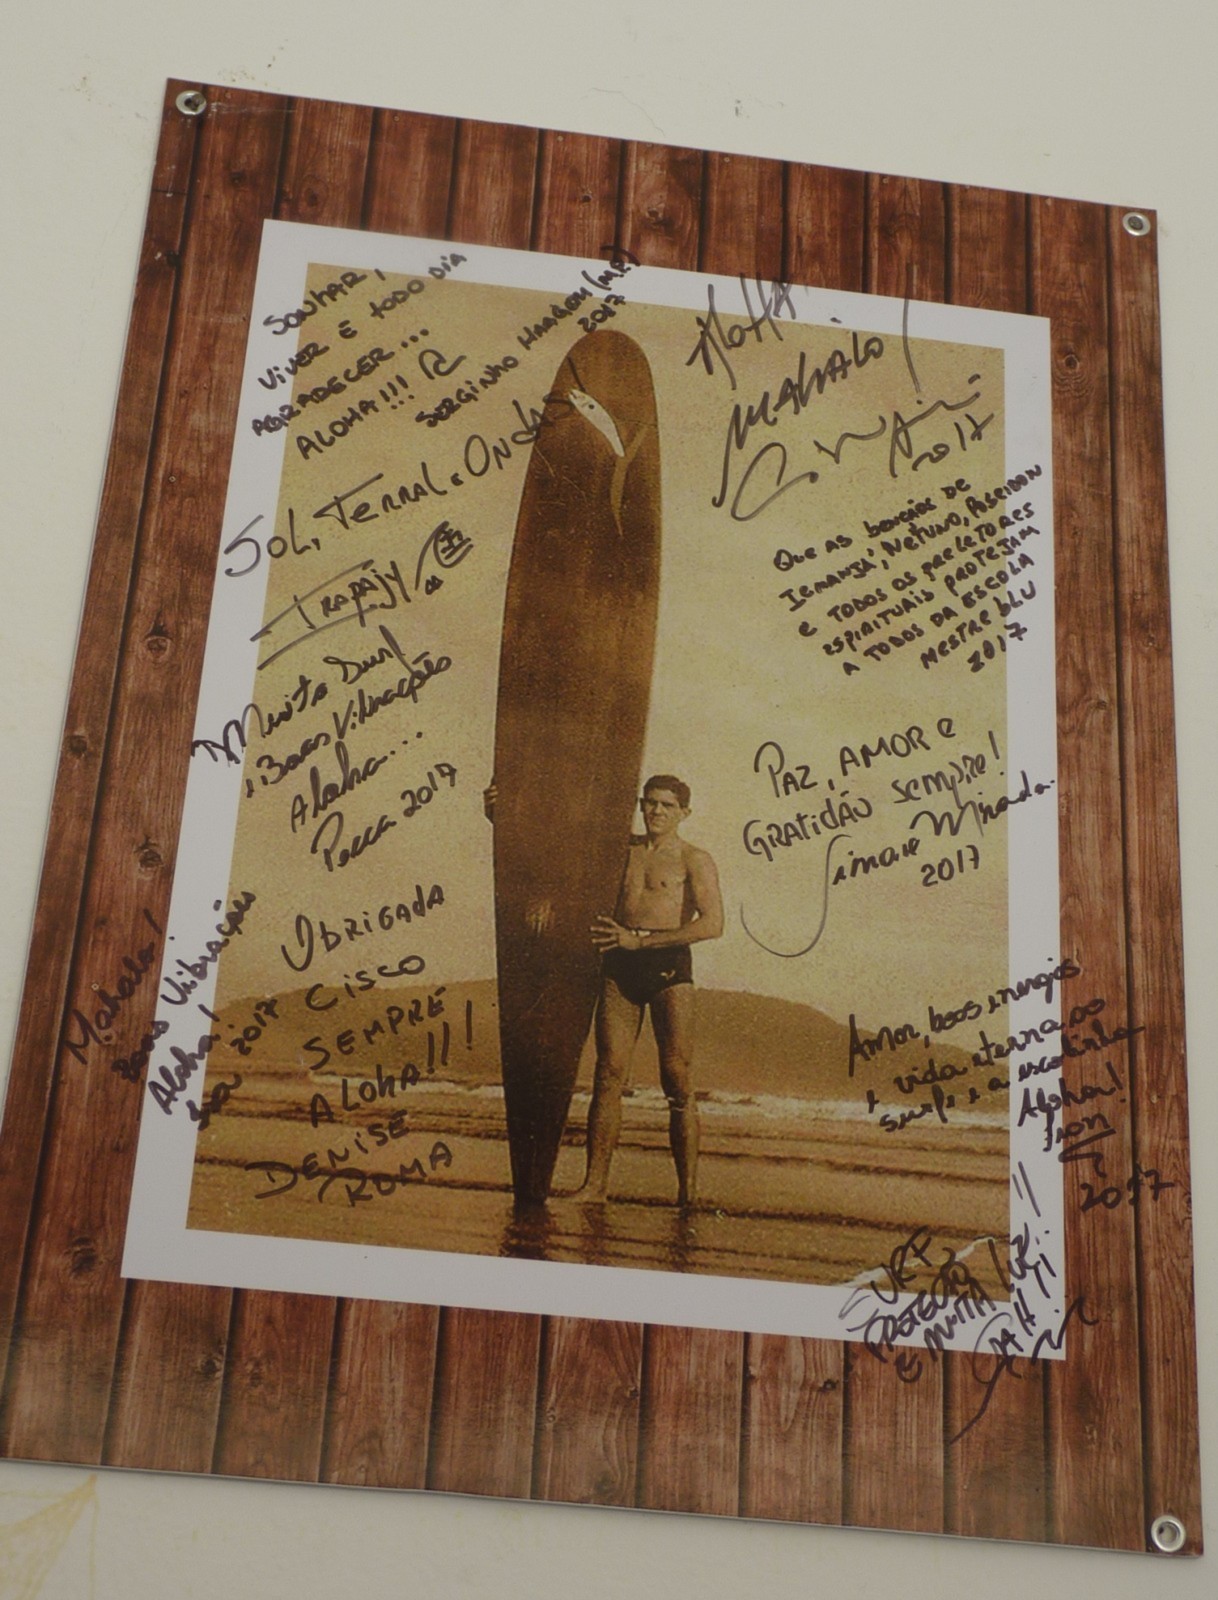 SONHAR,
VIVER E TODO DIA
AGRADECER...
ALOHA!!!
SERGINHO MARGEM (MA)
2017
SOL, TERRAL E ONDAS!
IRAPAJY
Muito Surf
Boas Vibrações
Aloha...
2017
Mahalo!
Boas Vibrações
Aloha!
2017
OBRIGADA
CISCO
SEMPRE
ALOHA!!!
DENISE
ROMA
ALOHA!
MAHALO!
2017
Que as bençãos de
Iemanjá, Netuno, Poseidon
e todos os protetores
espirituais protejam
a todos da escola
Mestre Blu
2017
PAZ, AMOR e
GRATIDÃO sempre!
2017
Amor, boas energias
e vida eterna ao
surf e a escolinha
Aloha!
2017
SURF,
PROTEÇÃO
E MUITA LUZ!!